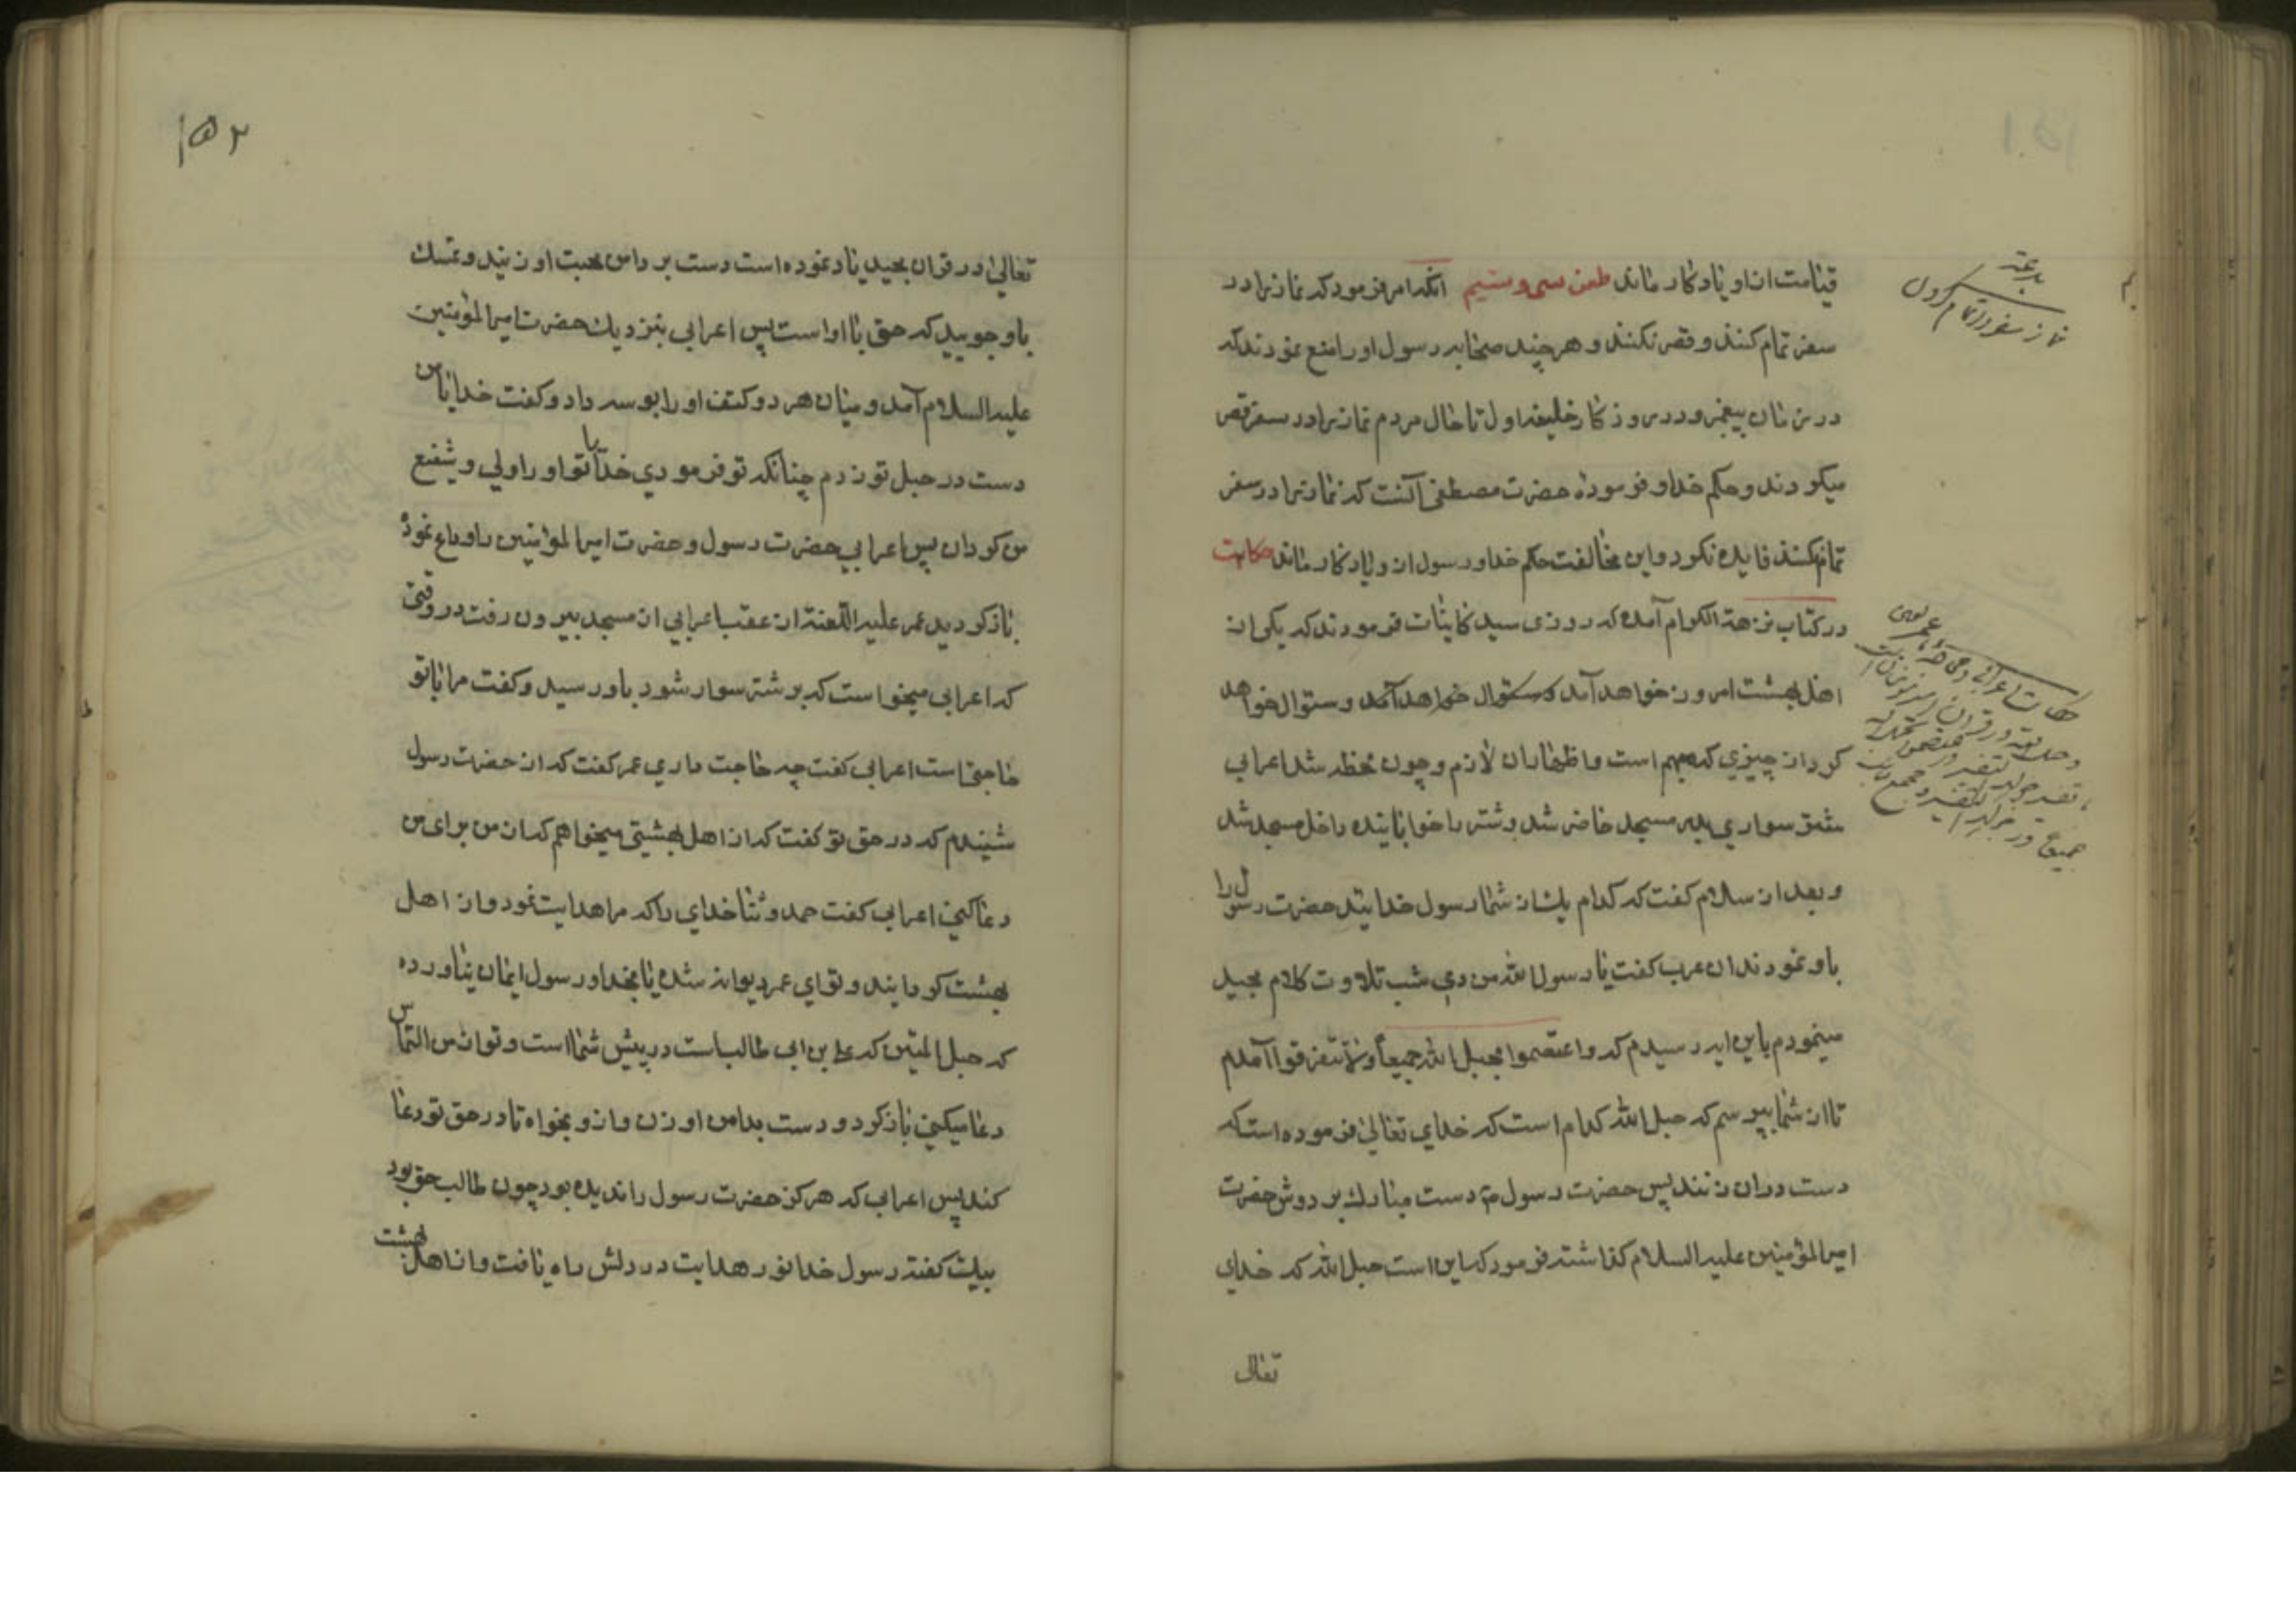 قیامت از او یادکار ماند طعن سی و سیم آنکه امر فرمود که نماز را در
سفر تمام کنند و قصر نکنند و هر چند صحابه رسول او را منع نمودند که
در زمان پیغمبر و در روزکار خلیفه اول تا حال مردم نماز را در سفر قصر
میکردند و حکم خدا و فرموده حضرت مصطفی آنست که نماز را در سفر
تمام نکنند فایده نکرد و این مخالفت حکم خدا و رسول از و یادکار ماند حکایت
در کتاب نزهة الکرام آمده که روزی سید کاینات فرمودند که یکی از
اهل بهشت امروز خواهد آمد و سئوال خواهد آمد و سئوال خواهد
کرد از چیزی که مهم است و اظهار ان لازم و چون لحظه شد اعرابی
شتر سواری بدر مسجد حاضر شد و شتر را خوابانیده داخل مسجد شد
و بعد از سلام کفت که کدام یک از شما رسول خدایید حضرت رسول را
باو نمودند ان عرب کفت یا رسول الله من دی شب تلاوت کلام مجید
مینمودم باین ایه رسیدم که واعتصموا بحبل الله جمیعاً ولا تتفرقوا آمدم
تا از شما بپرسم که حبل الله کدام است که خدای تعالی فرموده است که
دست دران زنند پس حضرت رسول ص دست مبارک بر دوش حضرت
امیر المؤمنین علیه السلام کذاشته فرمود که این است حبل الله که خدای
تعالی
بدعة
نماز سفر را تمام کردن
۱۵۲
تعالی در قران مجید یاد نموده است دست بر دامن محبت او زنید و تمسک
باو جویید که حق با او است پس اعرابی بنزدیک حضرت امیر المؤمنین
علیه السلام آمد و میان هر دو کتف او را بوسه داد و کفت خدایا من
دست در حبل تو زدم چنانکه تو فرمودی خدایا تو او را ولی و شفیع
من کردان پس اعرابی حضرت رسول و حضرت امیر المؤمنین را وداع نمود
بازکردید عمر علیه اللعنة از عقب اعرابی از مسجد بیرون رفت در وقتی
که اعرابی میخواست که بر شتر سوار شود باو رسید و کفت مرا با تو
حاجتی است اعرابی کفت چه حاجت داری عمر کفت که از حضرت رسول
شنیدم که در حق تو کفت که از اهل بهشتی میخواهم که از من برای من
دعا کنی اعرابی کفت حمد و ثنا خدای را که مرا هدایت نمود و از اهل
بهشت کردانید و تو ای عمر دیوانه شده یا بخدا و رسول ایمان نیاورده
که حبل المتین که علی بن ابی طالب است در پیش شما است و تو از من التماس
دعا میکنی بازکرد و دست بدامن او زن و از و بخواه تا در حق تو دعا
کند پس اعرابی که هرکز حضرت رسول را ندیده بود چون طالب حق بود
بیک کفته رسول خدا نور هدایت در دلش راه یافت و از اهل بهشت